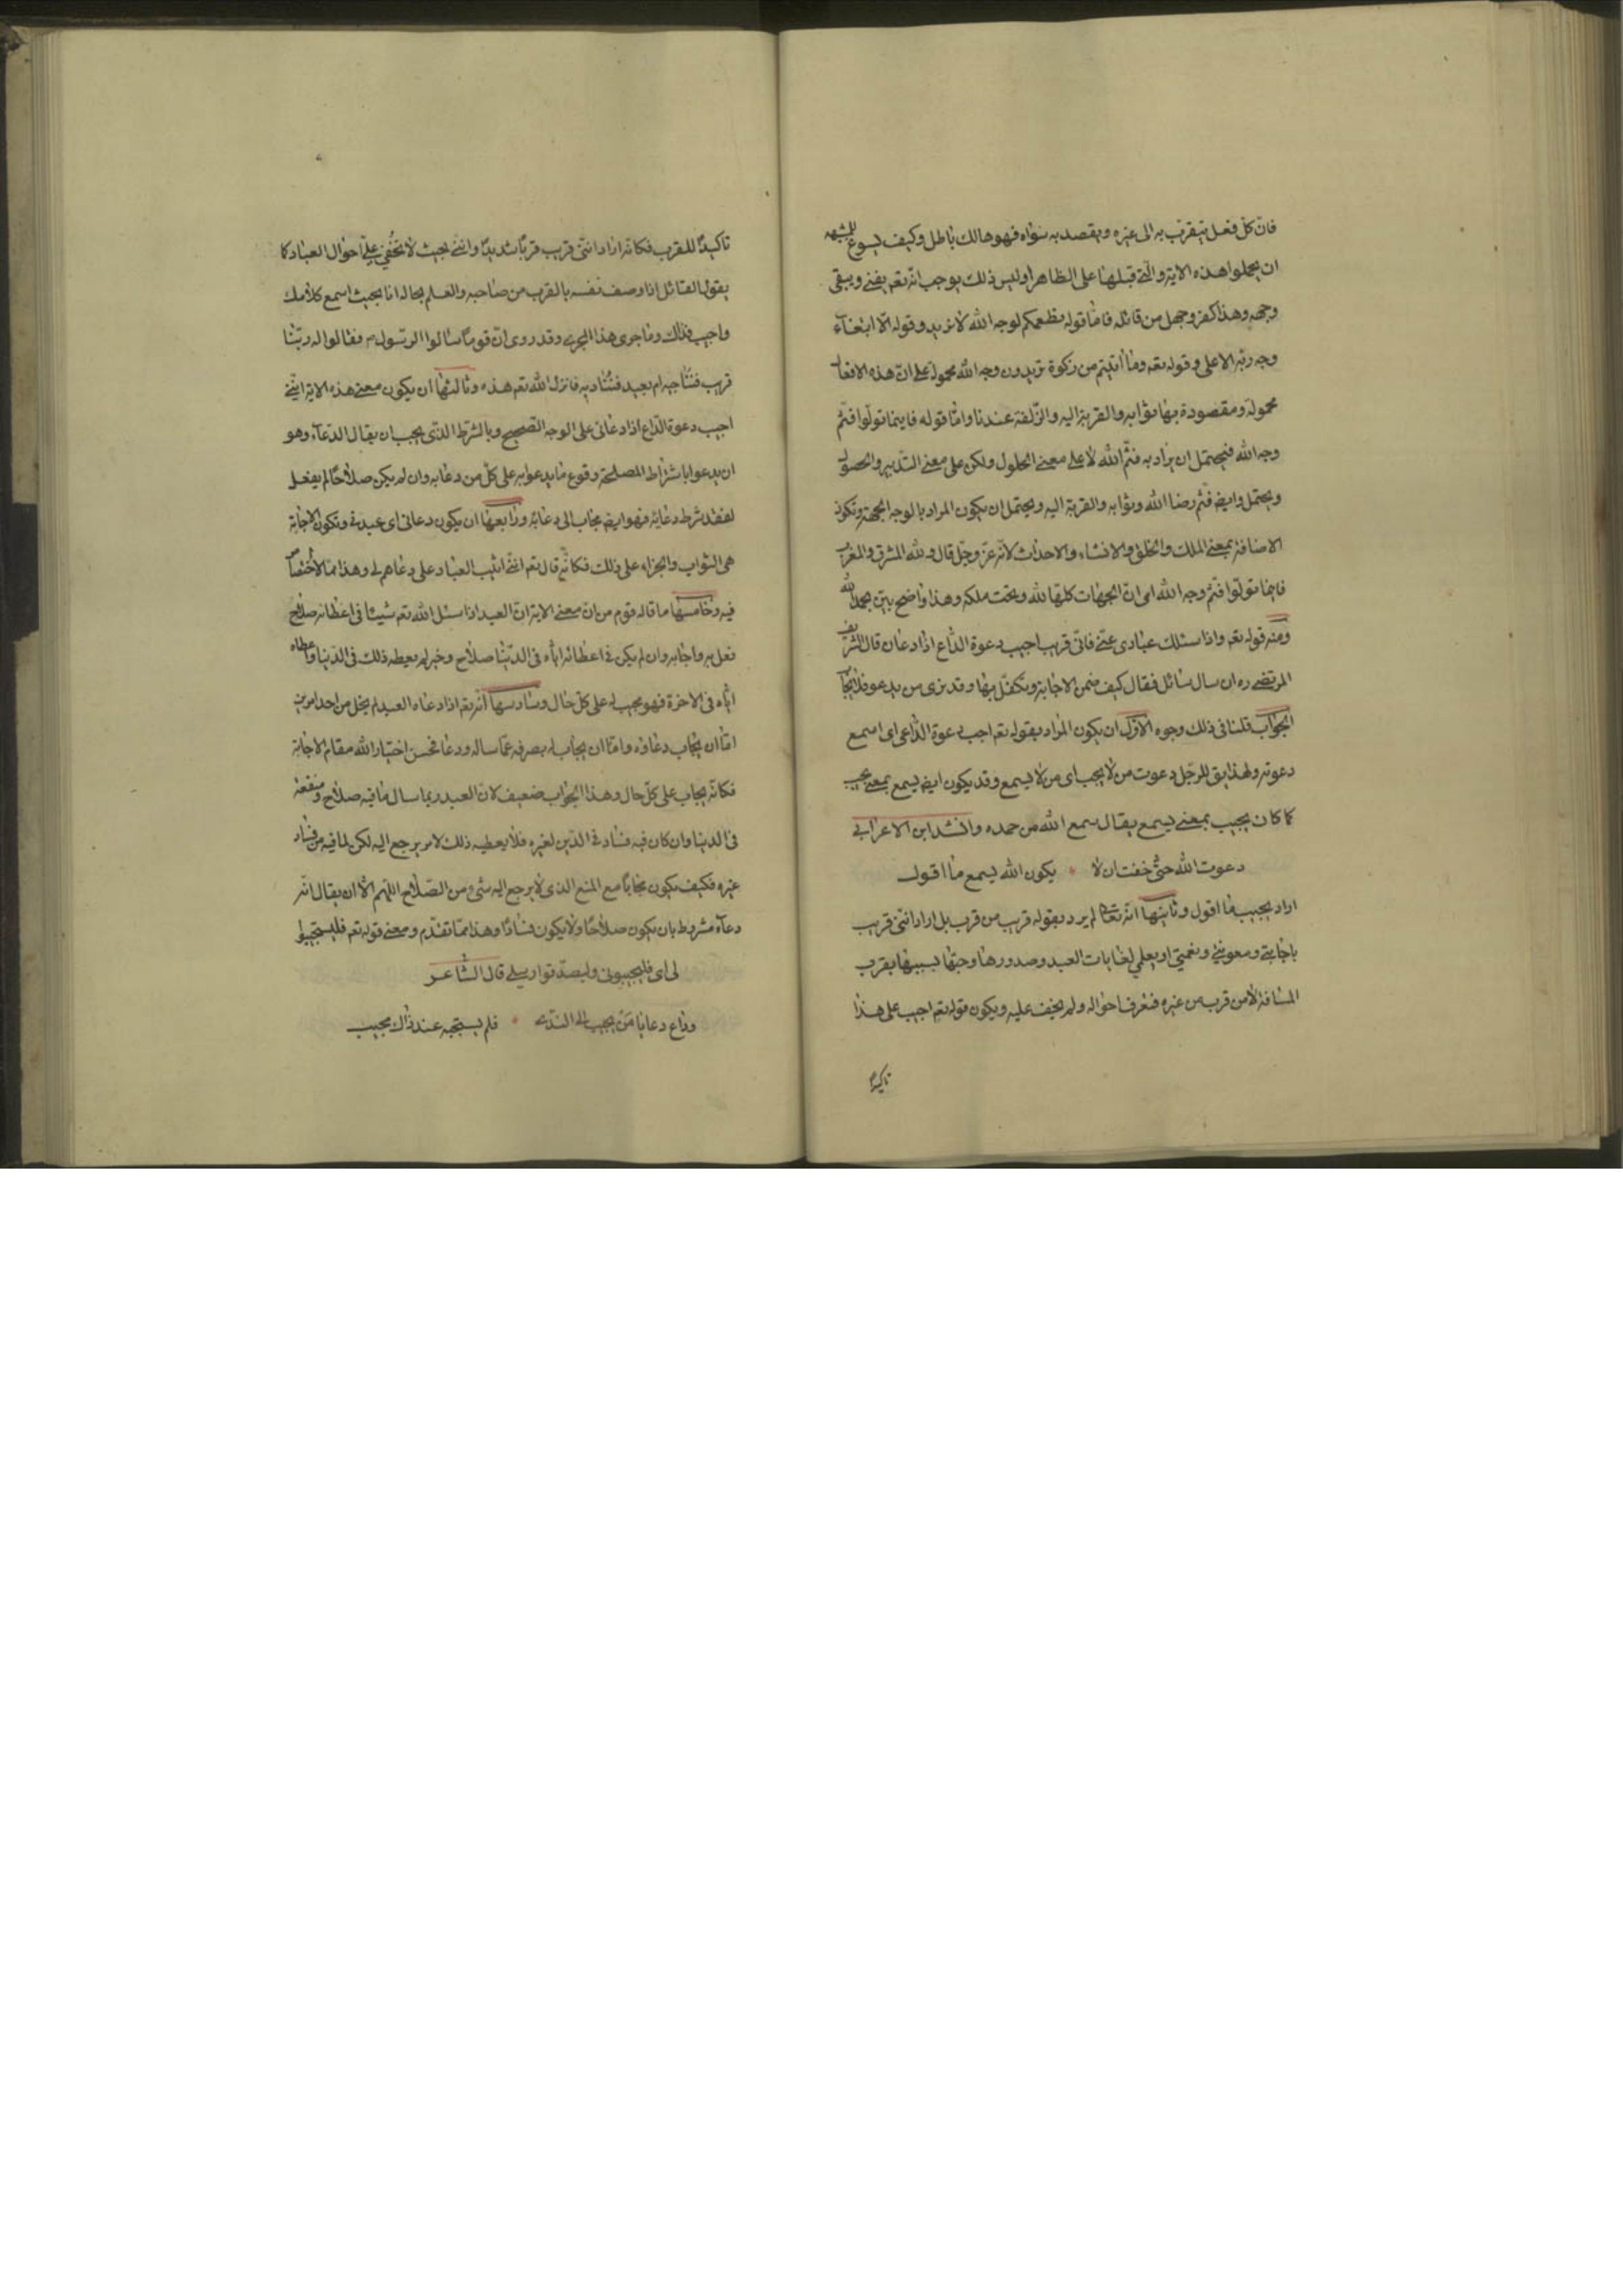 فان كل فعل يتقرب به الى غيره ويقصد به سواه فهو هالك باطل وكيف يسوغ للمشبهه
ان يحملوا هذه الاية والتي قبلها على الظاهر او ليس ذلك يوجب انه تعه يفنى ويبقى
وجهه وهذا كفر وجهل من قائله فاما قوله نطعمكم لوجه الله لا نريد وقوله الا ابتغاء
وجه ربه الاعلى وقوله تعه وما اتيتم من زكوة تريدون وجه الله محمولة على ان هذه الافعال
محمولة ومقصودة بها ثوابه والقربة اليه والزلفة عندنا واما قوله فاينما تولوا فثم
وجه الله فيحتمل ان يراد به فثم الله لا على معنى الحلول ولكن على معنى التدبير والحصول
ويحتمل وايضه فثم رضا الله وثوابه والقربة اليه ويحتمل ان يكون المراد بالوجه الجهة وتكون
الاضافة بمعنى الملك والخلق والانشاء والاحداث لانه عز وجل قال ولله المشرق والمغرب
فاينما تولوا فثم وجه الله اى ان الجهات كلها لله وتحت ملكه وهذا واضح بين بحمد لله
ومنه قوله تعه واذا سئلك عبادى عنى فانى قريب اجيب دعوة الداع اذا دعان قال الشريف
المرتضى ره ان سال سائل فقال كيف ضمن الاجابة وتكفل بها وقد نرى من يدعو فلا يجاب
الجواب قلنا فى ذلك وجوه الاول ان يكون المراد بقوله تعه اجيب دعوة الداعى اى اسمع
دعوته ولهذا يق للرجل دعوت من لا يجيب اى من لا يسمع وقد يكون ايضه يسمع بمعنى يجيب
كما كان يجيب بمعنى يسمع يقال سمع الله من حمده وانشد ابن الاعرابى
دعوت الله حتى خفت ان لا • يكون الله يسمع ما اقول
اراد يجيب ما اقول وثانيها انه تعالى لم يرد بقوله قريب من قرب بل اراد اننى قريب
باجابتى ومعونتى ونعمتى او بعلمى العبد بقرب
المسافة لان من قرب من غيره فتعرف احواله ولم يخف عليه ويكون قوله تعه اجيب على هذا
تاكيدا
تاكيدا للقرب فكانه اراد اننى قريب قربا شديدا واننى بحيث لا تخفى على احوال العباد كما
يقول القائل اذا وصف نفسه بالقرب من صاحبه والعلم بحاله انا بحيث اسمع كلامك
واجيب نداك وما جرى هذا المجرى وقد روى ان قوما سالوا الرسول ص فقالوا له ربنا
قريب فنناجيه ام بعيد فنناديه فانزل الله تعه هذه وثالثها ان يكون معنى هذه الاية اننى
اجيب دعوة الداع اذا دعانى على الوجه الصحيح وبالشرط الذى يجب ان يقال الدعاء وهو
ان يدعوا باشتراط المصلحة وقوع ما يدعو به على كل من دعا به وان لم يكن صلاحا لم يفعل
لفقد شرط دعائه فهو ايضه مجاب الى دعائه ورابعها ان يكون دعانى اى عبدنى وتكون الاجابة
هى الثواب والجزاء على ذلك فكانه قال تعه اننى اثيب العباد على دعاهم لى وهذا مما لا اختصاص
فيه وخامسها ما قاله قوم من ان معنى الاية ان العبد اذا سئل الله تعه شيئا فى اعطائه صلاح
فعل به واجابه وان لم يكن فى اعطائه اياه فى الدنيا صلاح وخير لم يعطه ذلك فى الدنيا واعطاه
اياه فى الاخرة فهو مجيب له على كل حال وسادسها انه تعه اذا دعاه العبد لم يخل من احد امرين
اما ان يجاب دعاؤه واما ان يجاب له بصرفه عما ساله ودعا فحسن اختيار الله مقام الاجابة
فكانه يجاب على كل حال وهذا الجواب ضعيف لان العبد ربما سال ما فيه صلاح ومنفعة
فى الدنيا وان كان فيه فساد فى الدين لغيره فلا يعطيه ذلك لامر يرجع اليه لكن لما فيه من فساد
غيره فكيف يكون مجابا مع المنع الذى لا يرجع اليه شئ من الصلاح اللهم الا ان يقال انه
دعاء مشروط بان يكون صلاحا ولا يكون فسادا وهذا مما تقدم ومعنى قوله تعه فليستجيبوا
لى اى فليجيبونى وليصدقوا رسلى قال الشاعر
وداع دعا يا من يجيب الى الندى • فلم يستجبه عند ذاك مجيب